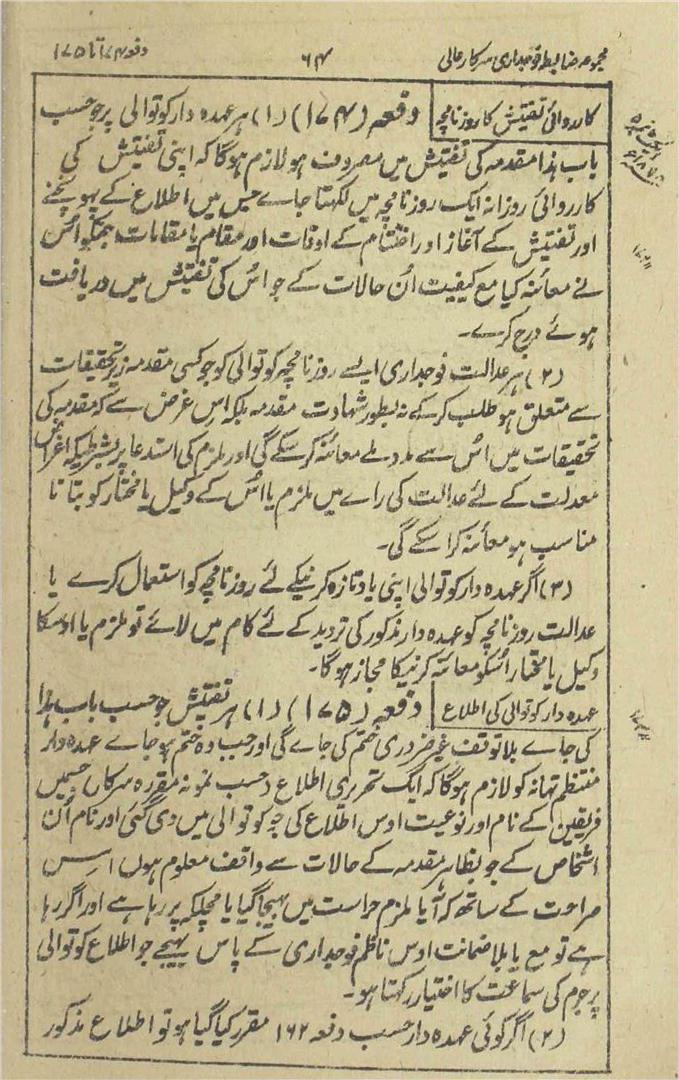 مجموعہ ضابطہ فوجداری سرکار عالی
۶۴
دفعہ ۱۷۴ تا ۱۷۵
کارروائی تفتیش کا روزنامچہ
دفعہ (۱۷۴) (۱) ہر عہدہ دار کوتوالی پر جو حسب
باب ہذا مقدمہ کی تفتیش میں مصروف ہو لازم ہوگا کہ اپنی تفتیش کی
کارروائی روزانہ ایک روزنامچہ میں لکھتا جاے جس میں اطلاع کے پہونچنے
اور تفتیش کے آغاز اور اختتام کے اوقات اور مقام یا مقامات جنکو اُس
نے معائنہ کیا مع کیفیت اُن حالات کے جو اس کی تفتیش میں دریافت
ہوئے درج کرے۔
(۲) ہر عدالت فوجداری ایسے روزنامچہ کوتوالی کو جو کسی مقدمہ زیر تحقیقات
سے متعلق ہو طلب کرکے نہ بطور شہادت مقدمہ بلکہ اس غرض سے کہ مقدمہ کی
تحقیقات میں اُس سے مدد ملے معائنہ کرسکے گی اور ملزم کی استدعا پر بشرطیکہ اغراض
معدلت کے لئے عدالت کی راے میں ملزم یا اُس کے وکیل یا مختار کو بتانا
مناسب ہو معائنہ کرا سکے گی۔
(۳) اگر عہدہ دار کوتوالی اپنی یاد تازہ کرنیکے لئے روزنامچے کو استعمال کرے یا
عدالت روزنامچہ کو عہدہ دار مذکور کی تردید کے لئے کام میں لائے تو ملزم یا اوسکا
وکیل یا مختار اُسکو معائنہ کرنیکا مجاز ہوگا۔
عہدہ دار کوتوالی کی اطلاع
دفعہ (۱۷۵) (۱) ہر تفتیش جو حسب باب ہذا
کی جاے بلا توقف غیر ضروری ختم کی جاے گی اور جب وہ ختم ہو جاے عہدہ دار
منتظم تھانہ کو لازم ہوگا کہ ایک تحریری اطلاع حسب نمونہ مقررہ سرکار جسمیں
فریقین کے نام اور نوعیت اوس اطلاع کی جو کوتوالی میں دی گئی اور نام اُن
اشخاص کے جو بظاہر مقدمہ کے حالات سے واقف معلوم ہوں اس
صراحت کے ساتھ کہ آیا ملزم حراست میں بھیجا گیا یا مچلکہ پر رہا ہے اور اگر رہا
ہے تو مع یا بلا ضمانت اوس ناظم فوجداری کے پاس بھیجے جو اطلاع کوتوالی
پر جرم کی سماعت کا اختیار رکھتا ہو۔
(۲) اگر کوئی عہدہ دار حسب دفعہ ۱۶۲ مقرر کیا گیا ہو تو اطلاع مذکور